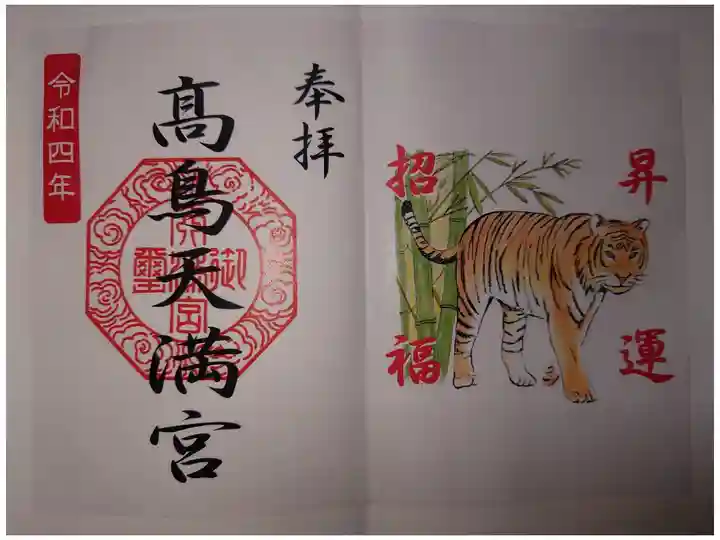 昇運
招福
奉拝
髙鳥天満宮
令和四年